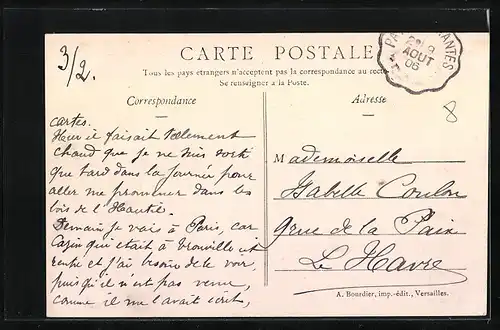 3/2.
CARTE POSTALE
Tous les pays étrangers n'acceptent pas la correspondance au recto
Se renseigner à la Poste.
Correspondance
Adresse
NANTES
AOUT
06
8
cartes.
Hier il faisait tellement
chaud que je ne suis sorti
que tard dans la journée pour
aller me promener dans les
bois de l'Hautie.
Demain je vais à Paris, car
Cazin qui était à Trouville est
rentré et j'ai besoin de le voir,
puisqu'il n'est pas venu,
comme il me l'avait écrit,
Mademoiselle
Isabelle Coulon
9 rue de la Paix
Le Havre
A. Bourdier, imp.-édit., Versailles.